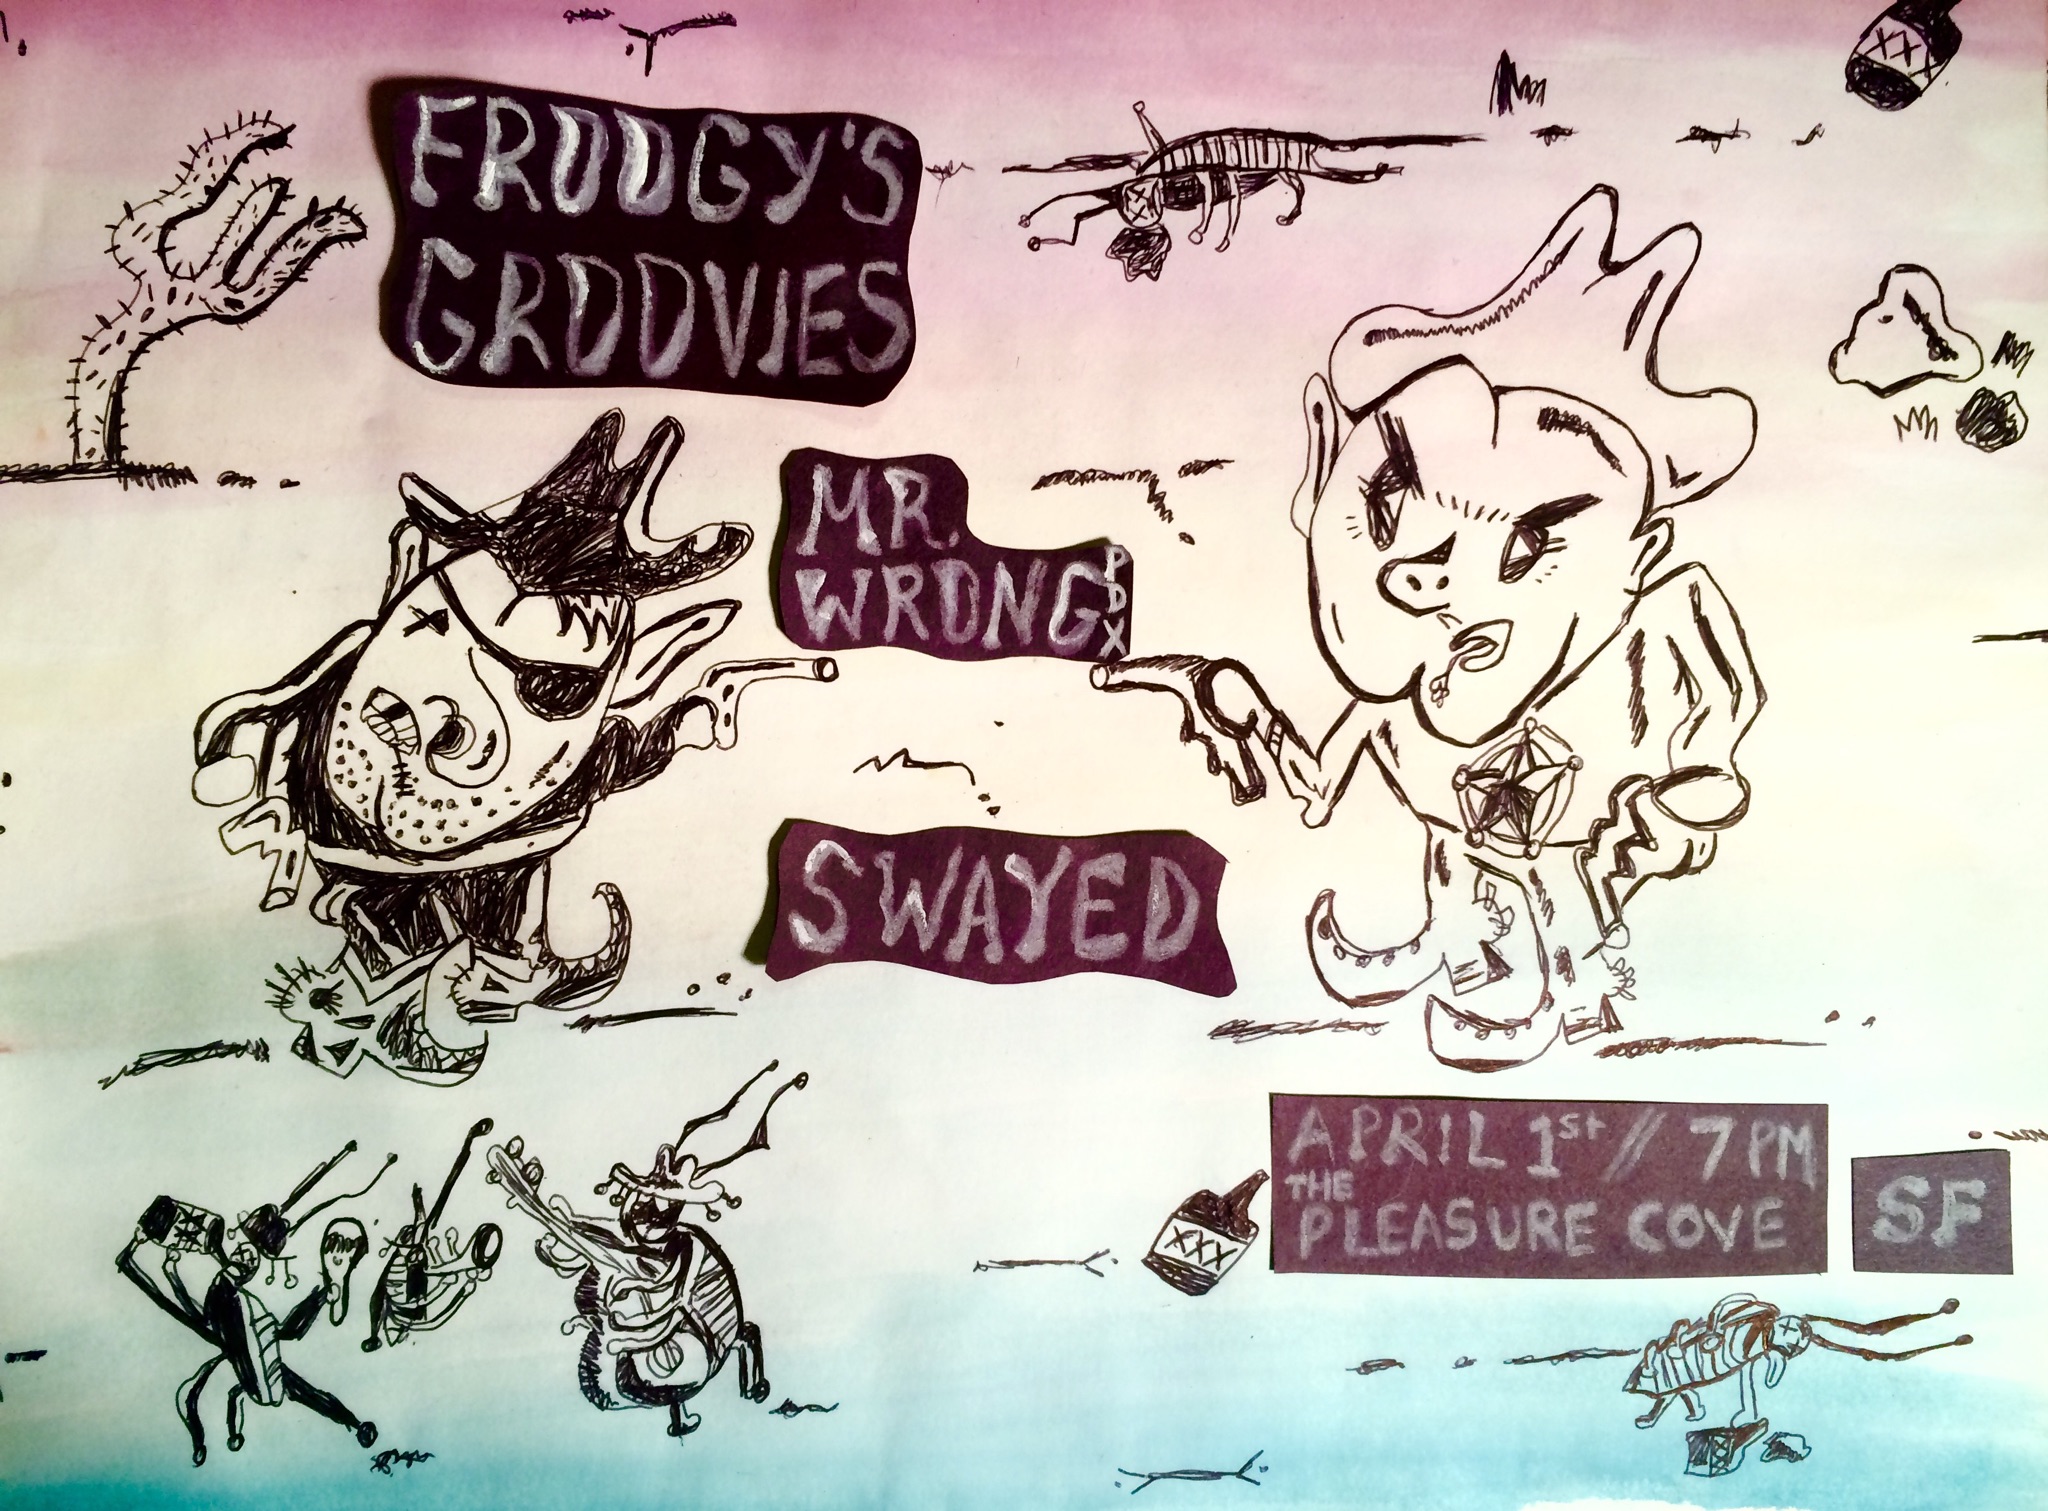 FROOGY'S
GROOVIES
MR.
WRONG PDX
SWAYED
APRIL 1st // 7PM
THE
PLEASURE COVE
SF
XXX
XXX